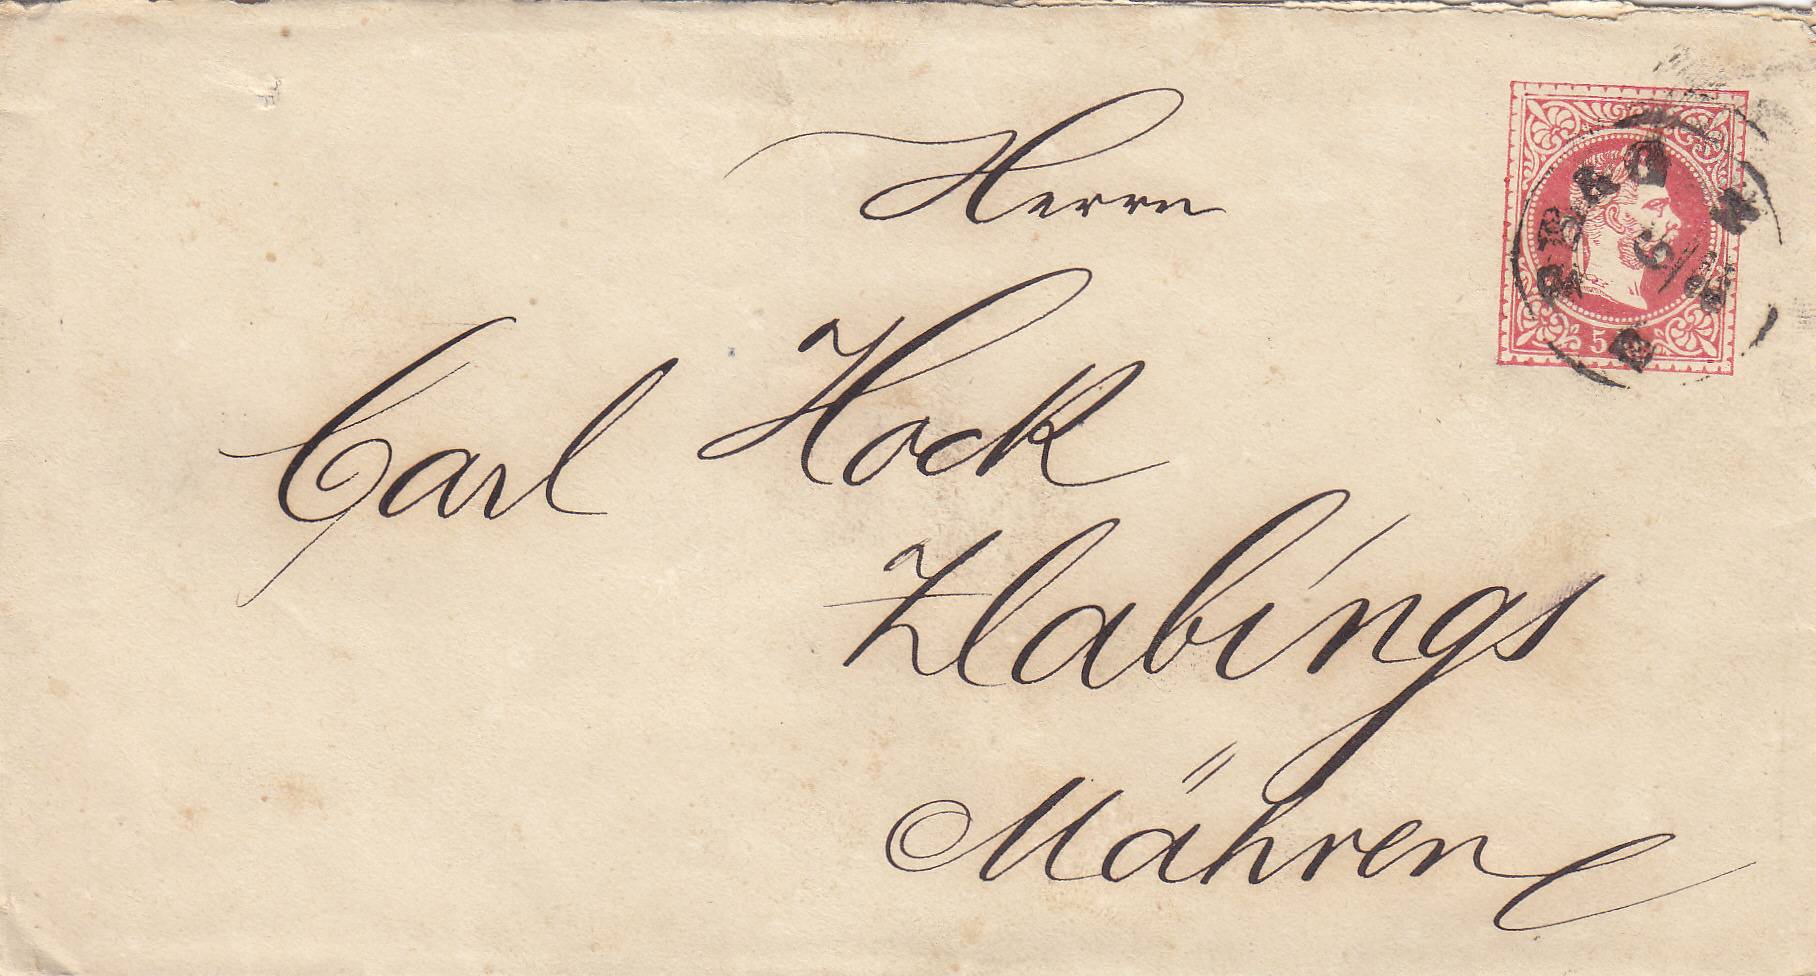 Herrn
Carl Hock
Zlabings
Mähren
PRAG
5